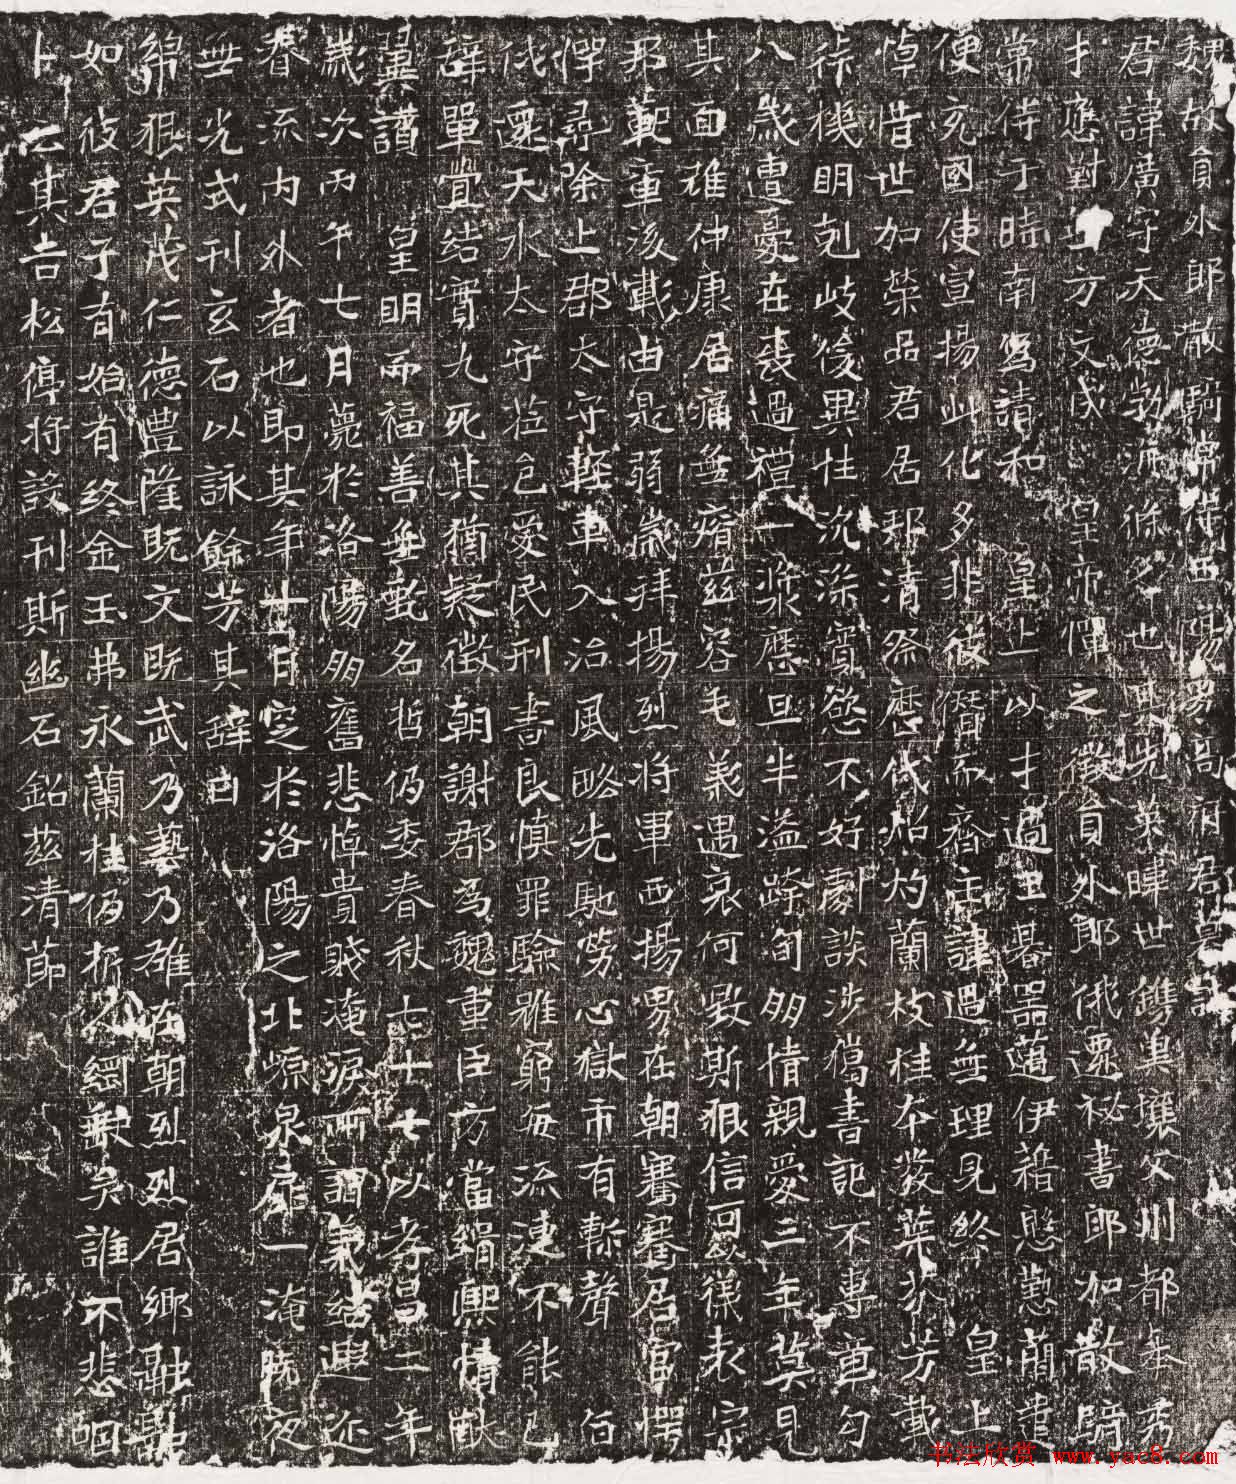 魏故員外郎散騎常侍西陽男高府君墓誌
君諱廣字天德勃海條人也其先英暉世鐫奧壤父州都本秀
才應對上方文成 皇帝懽之徵員外郎俄遷祕書郎加散騎
常侍于時南寫請和 皇上以才過王暮器邁伊藉慇懃蘭
便充國使宣揚此化多非彼僭而齊主諱過無理見終 皇上
悼惜世加榮品君居邦清祭歷代炤灼蘭枝桂本發葉芬芳載
機明剋岐後異性沉深寡慾不好劇談涉獦書記不專章句
八歲遭憂在喪過禮一漿應旦半溢踰旬朋情親愛三年莫見
其面雖仲康居痛無瘠茲容毛義遇哀何毀斯狠信可
邦範軍後載由是弱歲拜揚烈將軍西揚男在朝謇謇居官愕
愕尋除上郡太守輕車入治風略先馳勞心獄市有斬聲 百
伐還天水太守莅邑愛民刑書良慎罪驗雖窮每流漣不能已
辭單豈結實九死其猶疑徵朝謝郡為魏重臣方當緝熙情猷
翼讚 皇明而福善無甄名哲仍委春秋七十七以孝昌二年
歲次丙午七月薨於洛陽朋舊悲悼貴賤淹淚而謂氣結興還
春流內外者也即其年十日窆於洛陽之北原泉扉一淹曉夜
無光式刊玄石以詠餘芳其辭曰
綿狠英茂仁德豐隆既文既武乃藝乃雄在朝烈烈居鄉融融
如彼君子有始有終金玉弗永蘭桂傷折人矣誰不悲咽
卜云其吉松停將設刊斯幽石銘茲清節
书法欣赏 www.yac8.com